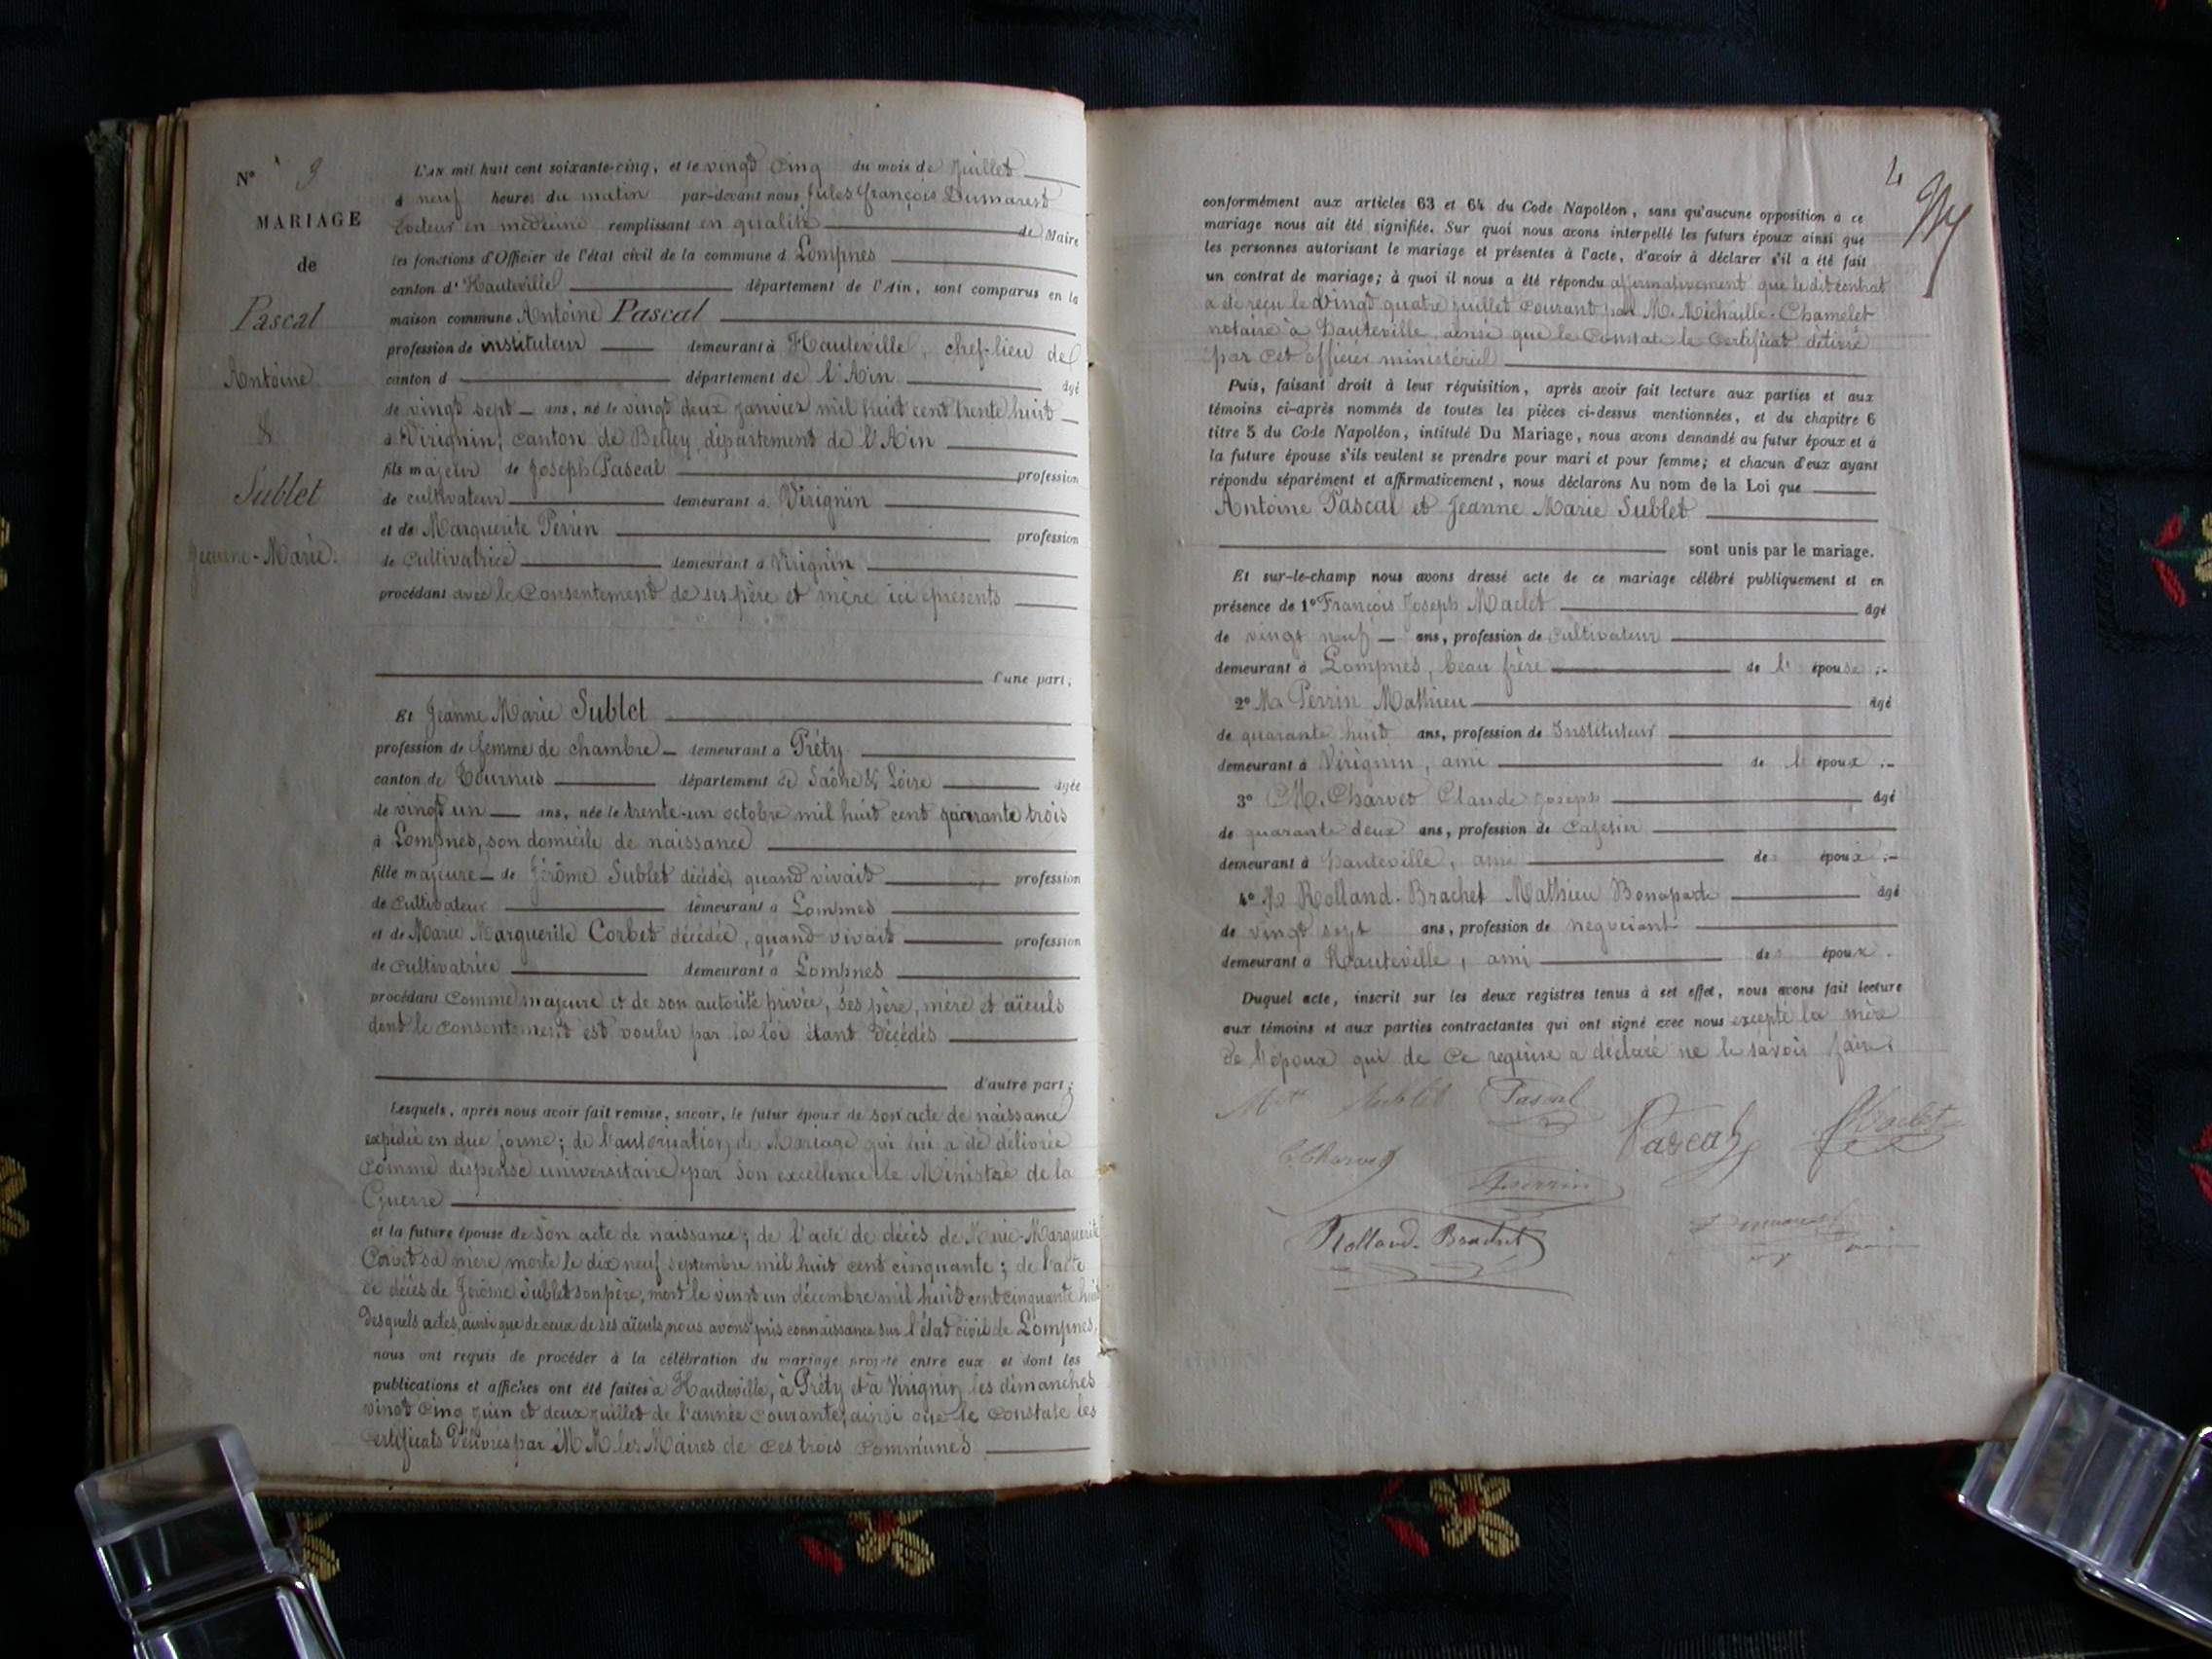 N° 9
MARIAGE
de
Pascal
Antoine
&
Sublet
Jeanne-Marie.
L'AN mil huit cent soixante-cinq, et le vingt cinq du mois de Juillet
à neuf heures du matin par-devant nous Jules François Dumarest
Docteur en médecine remplissant en qualité de Maire
les fonctions d'Officier de l'état civil de la commune d Lompnes
canton d' Hauteville département de l'Ain, sont comparus en la
maison commune Antoine Pascal
profession de instituteur demeurant à Hauteville, chef-lieu de
canton d département de l'Ain âgé
de vingt sept ans, né le vingt deux janvier mil huit cent trente huit
à Virignin, canton de Belley, département de l'Ain
fils majeur de Joseph Pascal profession
de cultivateur demeurant à Virignin
et de Marguerite Perrin profession
de cultivatrice demeurant à Virignin
procédant avec le consentement de ses père et mère ici présents
d'une part;
Et Jeanne Marie Sublet
profession de femme de chambre demeurant à Préty
canton de Tournus département de Saône & Loire âgée
de vingt un ans, née le trente-un octobre mil huit cent quarante trois
à Lompnes, son domicile de naissance
fille majeure de Jérôme Sublet décédé, quand vivait profession
de cultivateur demeurant à Lompnes
et de Marie Marguerite Corbet décédée, quand vivait profession
de cultivatrice demeurant à Lompnes
procédant comme majeure et de son autorité privée, ses père, mère et aïeuls
dont le consentement est voulu par la loi étant décédés
d'autre part;
Lesquels, après nous avoir fait remise, savoir, le futur époux de son acte de naissance
expédié en due forme; de l'autorisation de Mariage qui lui a été délivrée
comme dispensé universitaire par son excellence le Ministre de la
Guerre
et la future épouse de son acte de naissance; de l'acte de décès de Marie-Marguerite
Corbet sa mère morte le dix neuf septembre mil huit cent cinquante; de l'acte
de décès de Jérôme Sublet son père, mort le vingt un décembre mil huit cent cinquante huit
desquels actes, ainsi que de ceux de ses aïeuls, nous avons pris connaissance sur l'état civil de Lompnes,
nous ont requis de procéder à la célébration du mariage projeté entre eux et dont les
publications et affiches ont été faites à Hauteville, à Préty et à Virignin les dimanches
vingt cinq juin et deux juillet de l'année courante, ainsi que le constate les
certificats délivrés par MM. les Maires de ces trois communes
4
conformément aux articles 63 et 64 du Code Napoléon, sans qu'aucune opposition à ce
mariage nous ait été signifiée. Sur quoi nous avons interpellé les futurs époux ainsi que
les personnes autorisant le mariage et présentes à l'acte, d'avoir à déclarer s'il a été fait
un contrat de mariage; à quoi il nous a été répondu affirmativement que le dit contrat
a été reçu le vingt quatre juillet courant par M. Michaille-Chamelet
notaire à Hauteville, ainsi que le constate le certificat délivré
par cet officier ministériel
Puis, faisant droit à leur réquisition, après avoir fait lecture aux parties et aux
témoins ci-après nommés de toutes les pièces ci-dessus mentionnées, et du chapitre 6
titre 5 du Code Napoléon, intitulé Du Mariage, nous avons demandé au futur époux et à
la future épouse s'ils veulent se prendre pour mari et pour femme; et chacun d'eux ayant
répondu séparément et affirmativement, nous déclarons Au nom de la Loi que
Antoine Pascal et Jeanne Marie Sublet
sont unis par le mariage.
Et sur-le-champ nous avons dressé acte de ce mariage célébré publiquement et en
présence de 1° François Joseph Maclet âgé
de vingt neuf ans, profession de cultivateur
demeurant à Lompnes, beau frère de l' épouse ;-
2° M. Perrin Mathieu âgé
de quarante huit ans, profession de Instituteur
demeurant à Virignin, ami de l' époux ;-
3° M. Charvet Claude Joseph âgé
de quarante deux ans, profession de Cafetier
demeurant à Hauteville, ami des époux ;-
4° M. Rolland-Brachet Mathieu Bonaparte âgé
de vingt sept ans, profession de négociant
demeurant à Hauteville, ami des époux.
Duquel acte, inscrit sur les deux registres tenus à cet effet, nous avons fait lecture
aux témoins et aux parties contractantes qui ont signé avec nous excepté la mère
de l'époux qui de ce requise a déclaré ne le savoir faire.
M. Sublet Pascal
Pascal Maclet
Charvet
Perrin
Rolland-Brachet Dumarest